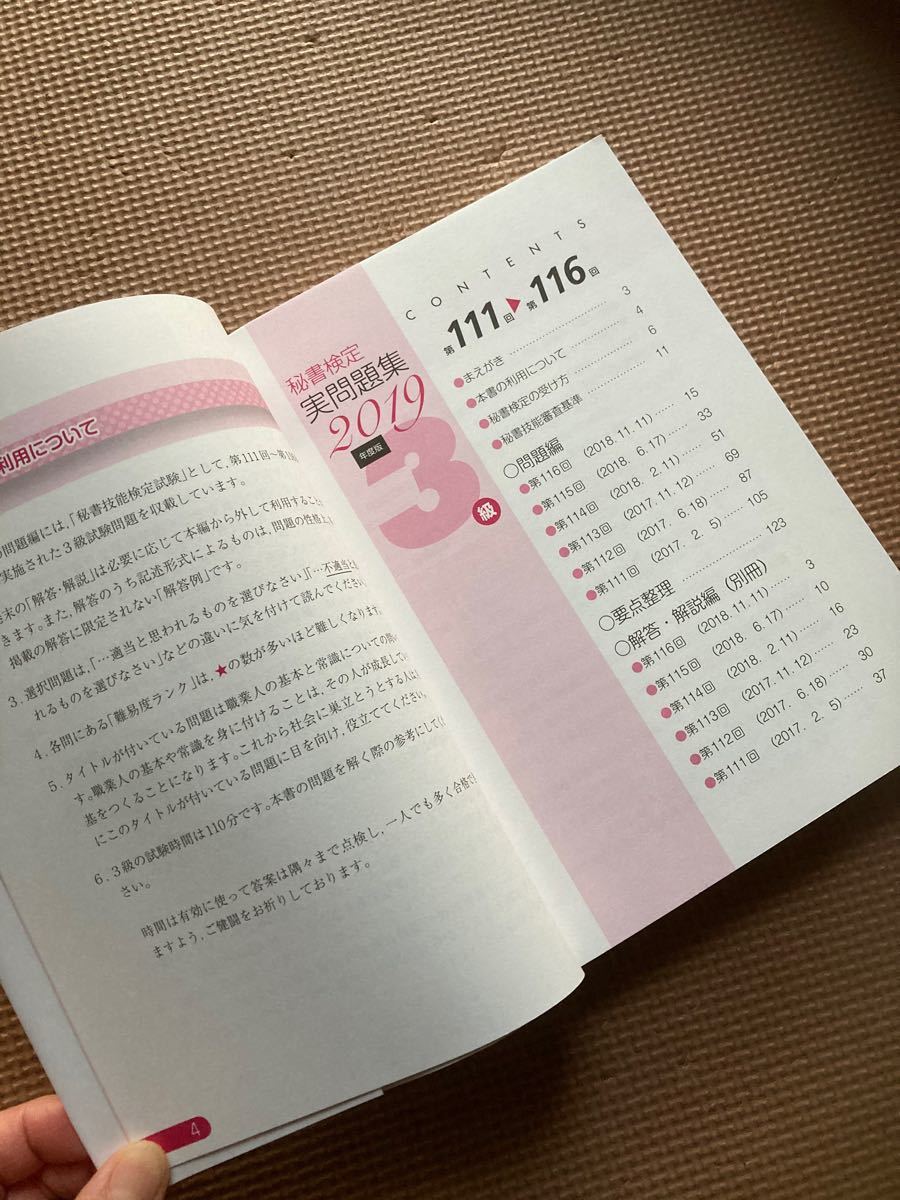 利用について
の問題編には、「秘書技能検定試験」として、第111回~第1
実施された3級試験問題を収載しています。
末の「解答・解説」は必要に応じて本編から外して利用すること
きます。また、解答のうち記述形式によるものは、問題の性格上、
掲載の解答に限定されない「解答例」です。
3. 選択問題は、「…適当と思われるものを選びなさい」「…不適当と
れるものを選びなさい」などの違いに気を付けて読んでください。
4. 各問にある「難易度ランク」は、★の数が多いほど難しくなります。
5. タイトルが付いている問題は職業人の基本と常識についての問
す。職業人の基本や常識を身に付けることは、その人が成長してい
基をつくることになります。これから社会に巣立とうとする人は
にこのタイトルが付いている問題に目を向け、役立ててください。
6. 3級の試験時間は110分です。本書の問題を解く際の参考にしてく
さい。
時間は有効に使って答案は隅々まで点検し、一人でも多く合格で
ますよう、ご健闘をお祈りしております。
4
秘書検定
実問題集
2019
年度版
3
級
CONTENTS
第111回▶第116回
●まえがき …… 3
●本書の利用について …… 4
●秘書検定の受け方 …… 6
●秘書技能審査基準 …… 11
○問題編
●第116回 (2018. 11. 11) …… 15
●第115回 (2018. 6. 17) …… 33
●第114回 (2018. 2. 11) …… 51
●第113回 (2017. 11. 12) …… 69
●第112回 (2017. 6. 18) …… 87
●第111回 (2017. 2. 5) …… 105
○要点整理 …… 123
○解答・解説編(別冊)
●第116回 (2018. 11. 11) …… 3
●第115回 (2018. 6. 17) …… 10
●第114回 (2018. 2. 11) …… 16
●第113回 (2017. 11. 12) …… 23
●第112回 (2017. 6. 18) …… 30
●第111回 (2017. 2. 5) …… 37